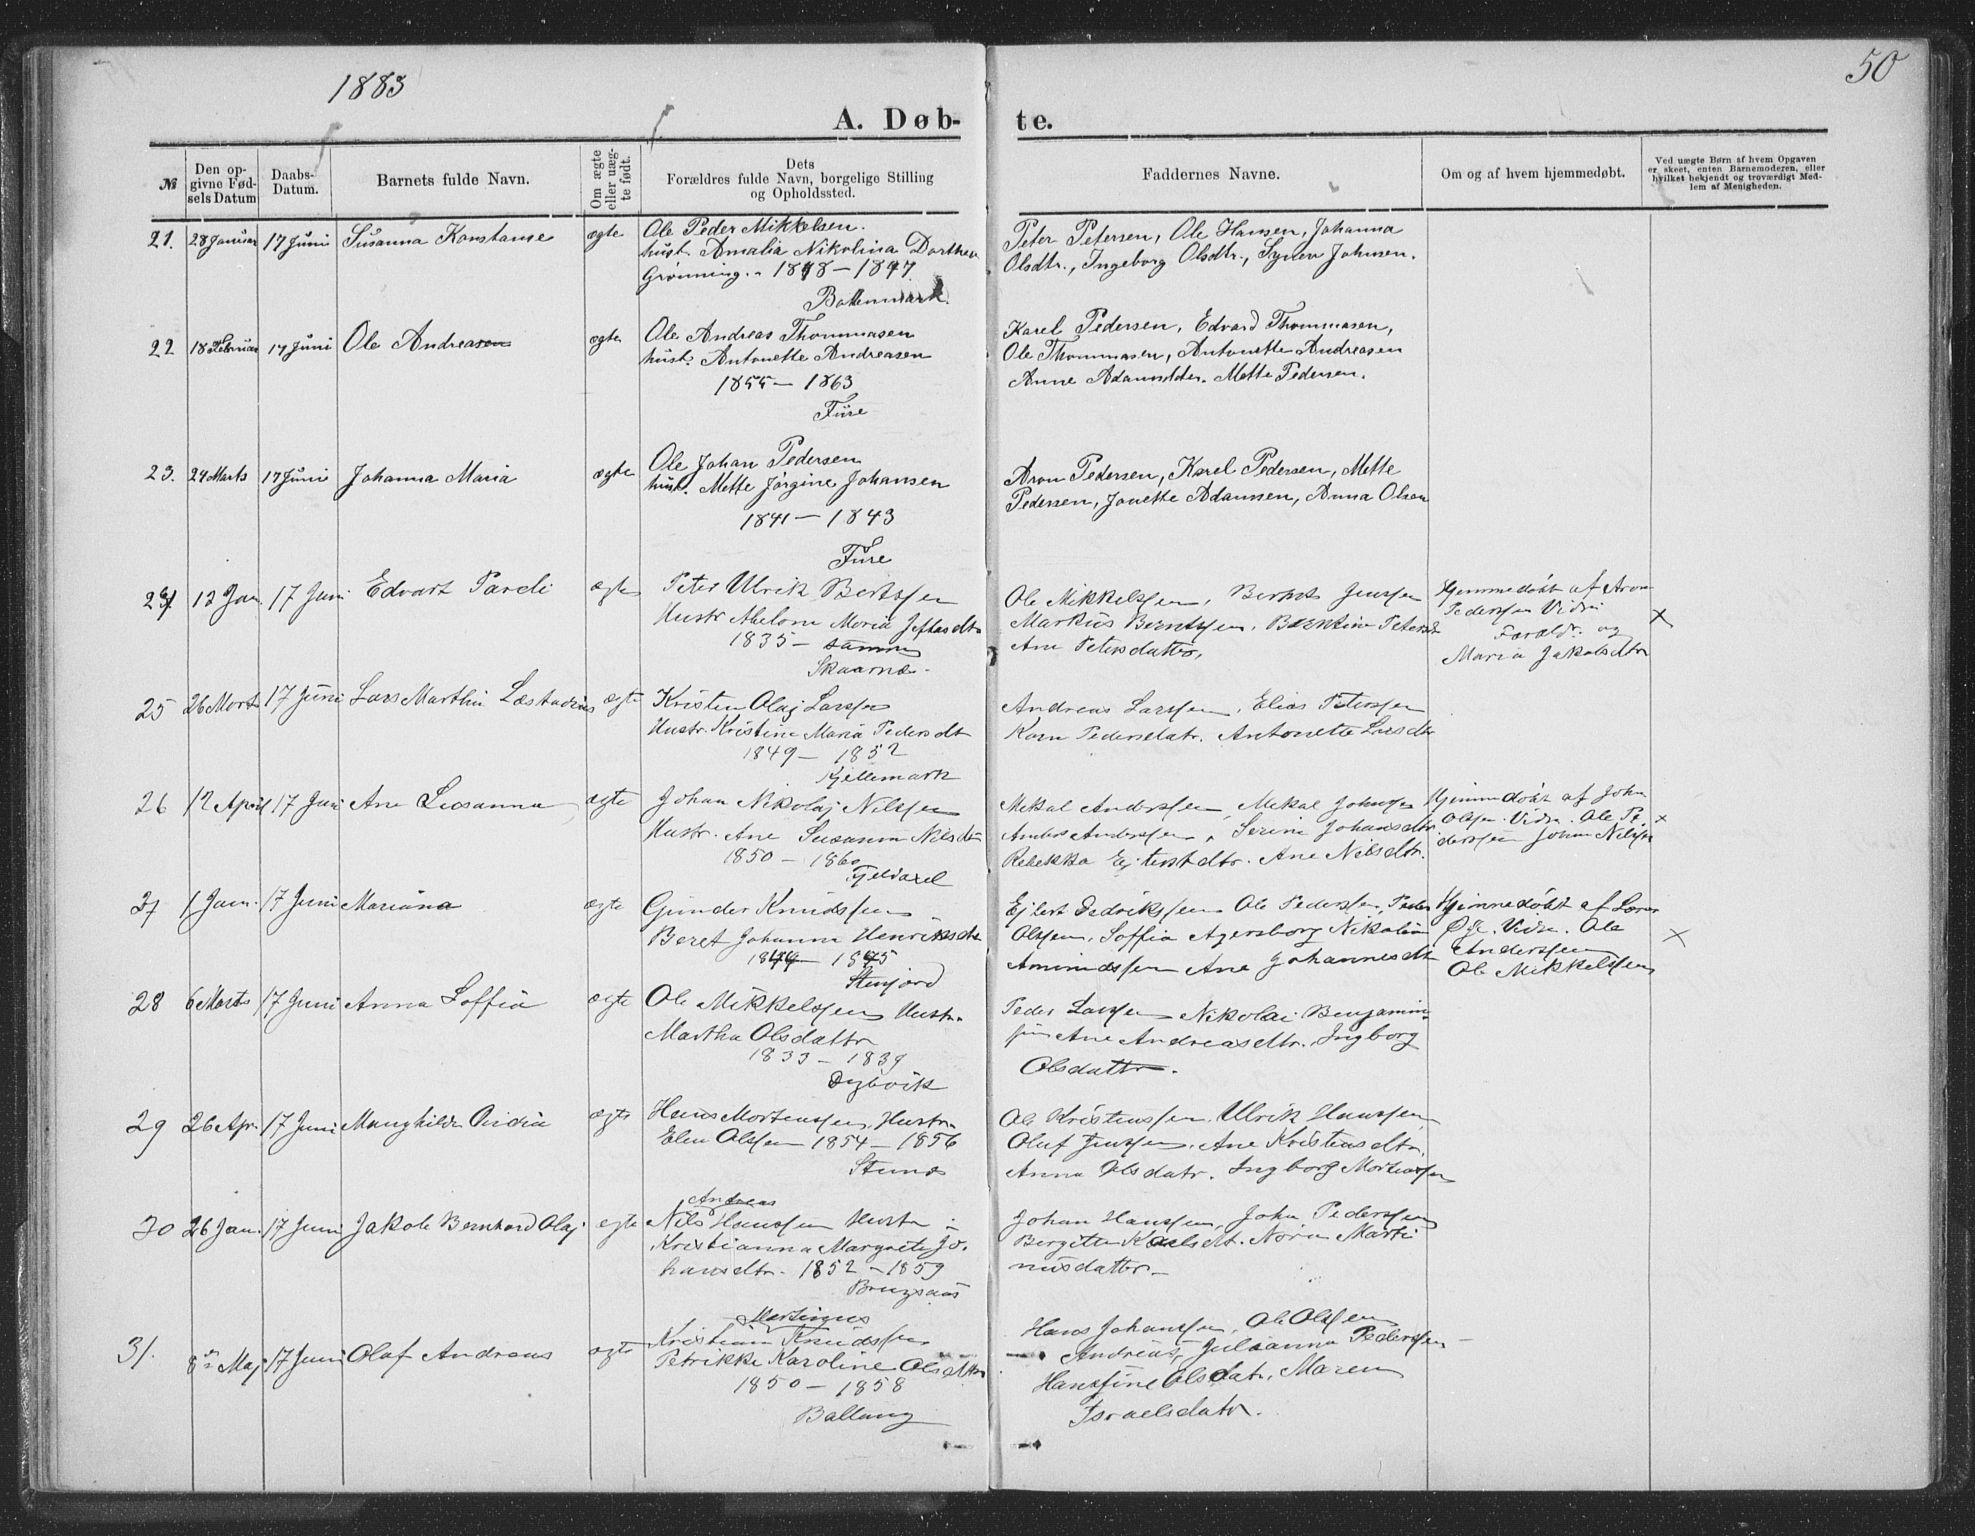 1883
50
A. Døb-
te.
№
Den op-
givne Fød-
sels Datum
Daabs-
Datum.
Barnets fulde Navn.
Om ægte
eller uæg-
te født.
Dets
Forældres fulde Navn, borgelige Stilling
og Opholdssted.
Faddernes Navne.
Om og af hvem hjemmedøbt.
Ved uægte Børn af hvem Opgaven
er skeet, enten Barnemoderen, eller
hvilket bekjendt og troværdigt Med-
lem af Menigheden.
21. 28 Januar 17 Juni Susanna Konstanse ægte
Ole Peder Mikkelsen.
hust. Amalia Nikolina Dorthea
Grønning. 1848 – 1847
Ballenmark.
Peter Petersen, Ole Hansen, Johanna
Olsdtr., Ingeborg Olsdtr., Johnsen.
22 18 Februar 17 Juni Ole Andreasen ægte
Ole Andreas Thommasen
hust. Antonette Andreasen
1855 – 1863
Fure
Karel Pedersen, Edvard Thommasen,
Ole Thommasen, Antonette Andreasen
Anne Mette Pedersen.
23. 24 Marts 17 Juni Johanna Maria ægte
Ole Johan Pedersen
hust. Mette Jørgine Johansen
1841 – 1843
Fure
Aron Pedersen, Karel Pedersen, Mette
Pedersen, Jonette Adamsen, Anna Olsen
24 12 Jan. 17 Juni Edvart Pareli ægte
Peter Ulrik Bertssen
Hustr Abelone Maria Jeftasdtr
1835 – samme
Skaarnæs
Ole Mikkelssen, Bernt Jenssen
Markus Berntssen, Berntine Petersdtr
Ane Petersdatter,
Hjemmedøbt af Aron
Pederssen Vidn:
Foræld. og
Maria Jakobsdtr
X
25 26 Marts 17 Juni Lars Marthin Læstadius ægte
Kristen Olaj Larssen
Hustr. Kristine Maria Pedersdtr
1849 – 1852
Kjellemark
Andreas Larssen, Elias Peterssen
Karn Pedersdatr. Antonette Larsdtr
26 12 April 17 Juni Ane Susanna ægte
Johan Nikolaj Nilssen
Hustr. Ane Susanna Nilsdtr
1850 – 1860
Mekal Anderssen, Mekal Johnssen
Anders Anderssen, Serine Johansdtr.
Rebekka Ejlertsdtr. Ane Nilsdtr.
Hjemmedøbt af John
Olsen. Vidn. Ole Pe
derssen Johan Nilssen
x
27 1 Jan. 17 Juni Mariana ægte
Gunder Knudssen
Beret Johanna Henriksdtr
1844 – 1845
Stenfjord
Ejlert Dedrikssen Ole Pederssen, Peder
Olssen, Soffia Agersborg Nikolai
Amundssen Ane Johannesdtr
Hjemmedøbt af Lærer
Øye. Vidn. Ole
Anderssen
Ole Mikkelssen
X
28 6 Marts 17 Juni Anna Soffia ægte
Ole Mikkelssen Hustr.
Martha Olsdattr
1833 – 1839
Dybvik
Peder Larssen Nikolai Benjamin-
sen Ane Andreasdtr. Ingborg
Olsdattr.
29 26 Apr. 17 Juni Manghilde Pridia ægte
Hans Mortenssen, Hustr.
Elen Olssen 1854 – 1856
Stunds
Ole Kristenssen, Ulrik Hanssen
Oluf Jenssen, Ane Kristensdtr.
Anna Olsdatr. Ingborg Mortenssen
30 26 Jan. 17 Juni Jakob Bernhard Olaj ægte
Andreas
Nils Hanssen Hustr.
Kristianna Margrete Jo-
hansdtr. 1852 – 1859
Johan Hanssen, John Pederssen
Bergitte Karlsdt. Nora Marti
nusdatter.
31. 8de Maj 17 Juni Olaf Andreas ægte
Martinus
Kristian Knudssen
Petrikke Karoline Olsdattr
1850 – 1858
Ballang
Hans Johanssen, Ole Olssen
Andreas, Julianna Pederssen
Hanssine Olsdatr, Maren
Israelsdatr.